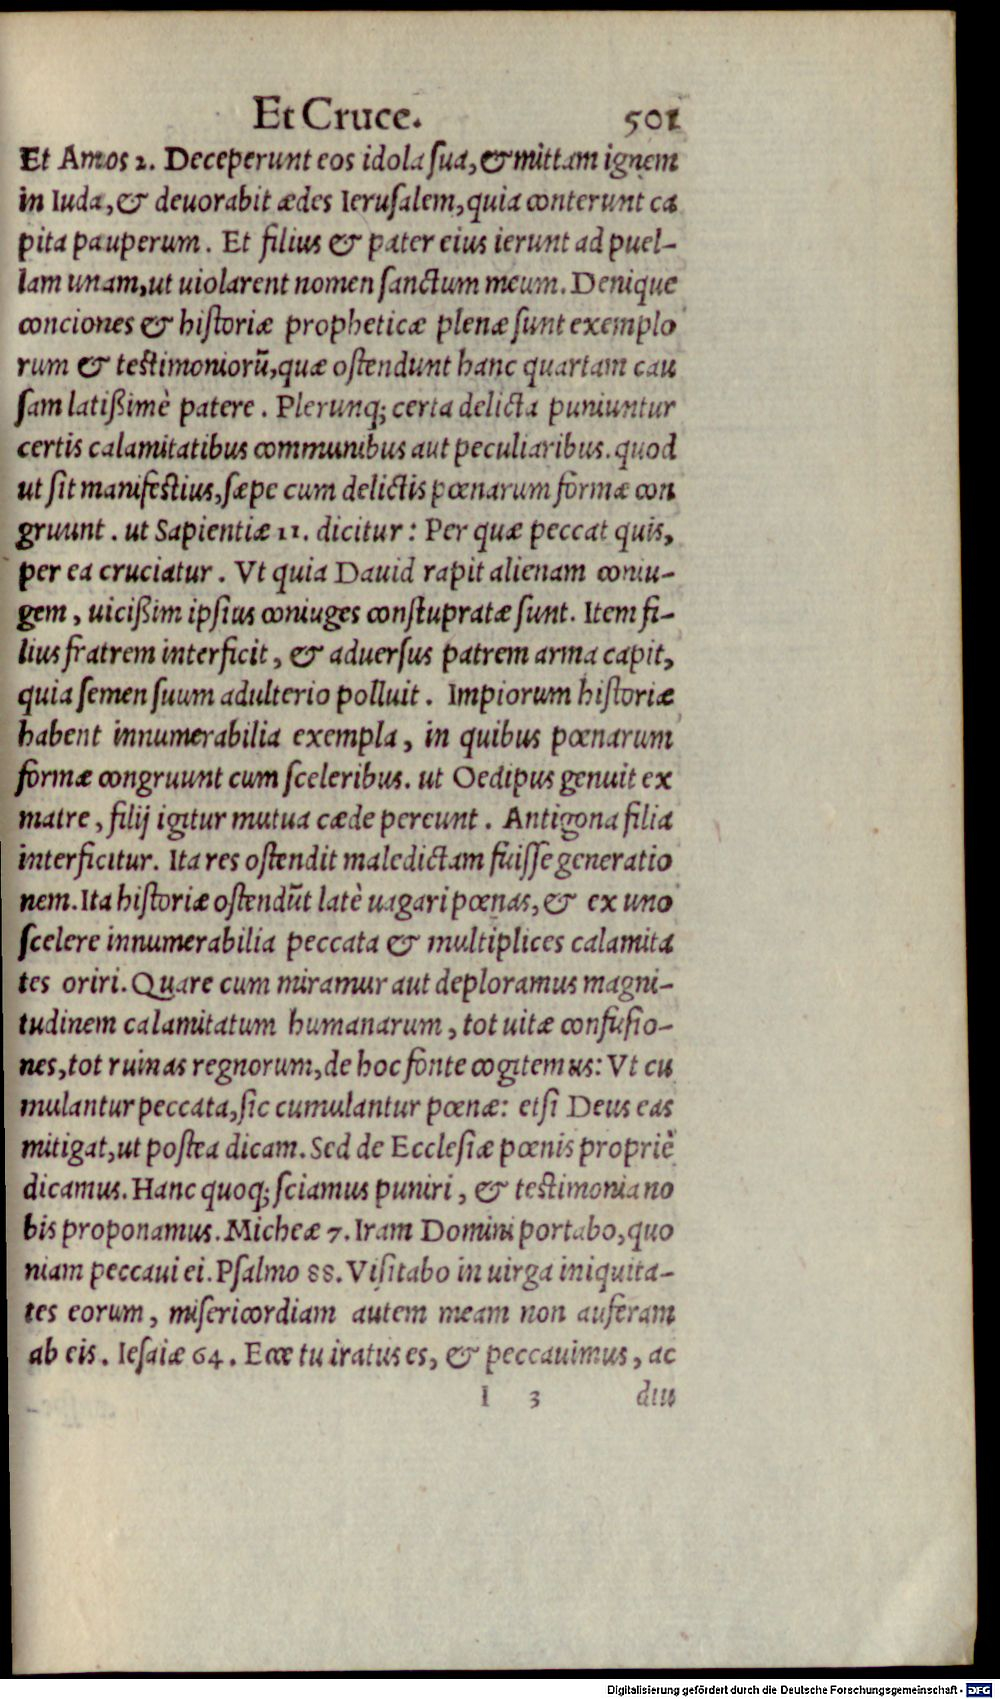 Et Cruce. 501
Et Amos 2. Deceperunt eos idola ſua, & mittam ignem
in Iuda, & deuorabit ædes Ieruſalem, quia conterunt ca
pita pauperum. Et filius & pater eius ierunt ad puel-
lam unam, ut uiolarent nomen ſanctum meum. Denique
conciones & hiſtoriæ propheticæ plenæ ſunt exemplo
rum & teſtimoniorū, quæ oſtendunt hanc quartam cau
ſam latißimè patere. Plerunq; certa delicta puniuntur
certis calamitatibus communibus aut peculiaribus. quod
ut ſit manifeſtius, ſæpe cum delictis pœnarum formæ con
gruunt. ut Sapientiæ 11. dicitur: Per quæ peccat quis,
per ea cruciatur. Vt quia Dauid rapit alienam coniu-
gem, uicißim ipſius coniuges conſtupratæ ſunt. Item fi-
lius fratrem interficit, & aduerſus patrem arma capit,
quia ſemen ſuum adulterio polluit. Impiorum hiſtoriæ
habent innumerabilia exempla, in quibus pœnarum
formæ congruunt cum ſceleribus. ut Oedipus genuit ex
matre, filij igitur mutua cæde pereunt. Antigona filia
interficitur. Ita res oſtendit maledictam fuiſſe generatio
nem. Ita hiſtoriæ oſtendūt latè uagari pœnas, & ex uno
ſcelere innumerabilia peccata & multiplices calamita
tes oriri. Quare cum miramur aut deploramus magni-
tudinem calamitatum humanarum, tot uitæ confuſio-
nes, tot ruinas regnorum, de hoc fonte cogitemus: Vt cu
mulantur peccata, ſic cumulantur pœnæ: etſi Deus eas
mitigat, ut poſtea dicam. Sed de Eccleſiæ pœnis propriè
dicamus. Hanc quoq; ſciamus puniri, & teſtimonia no
bis proponamus. Micheæ 7. Iram Domini portabo, quo
niam peccaui ei. Pſalmo 88. Viſitabo in uirga iniquita-
tes eorum, miſericordiam autem meam non auferam
ab eis. Ieſaiæ 64. Ecce tu iratus es, & peccauimus, ac
l 3 diu
Digitalisierung gefördert durch die Deutsche Forschungsgemeinschaft - DFG